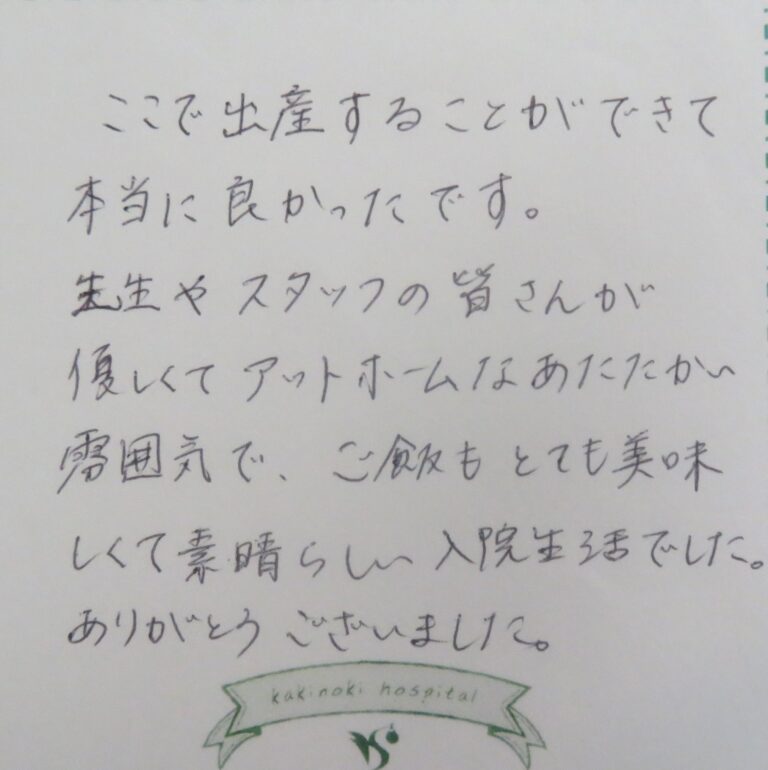 ここで出産することができて
本当に良かったです。
先生やスタッフの皆さんが
優しくてアットホームなあたたかい
雰囲気で、ご飯もとても美味
しくて素晴らしい入院生活でした。
ありがとうございました。
kakinoki hospital